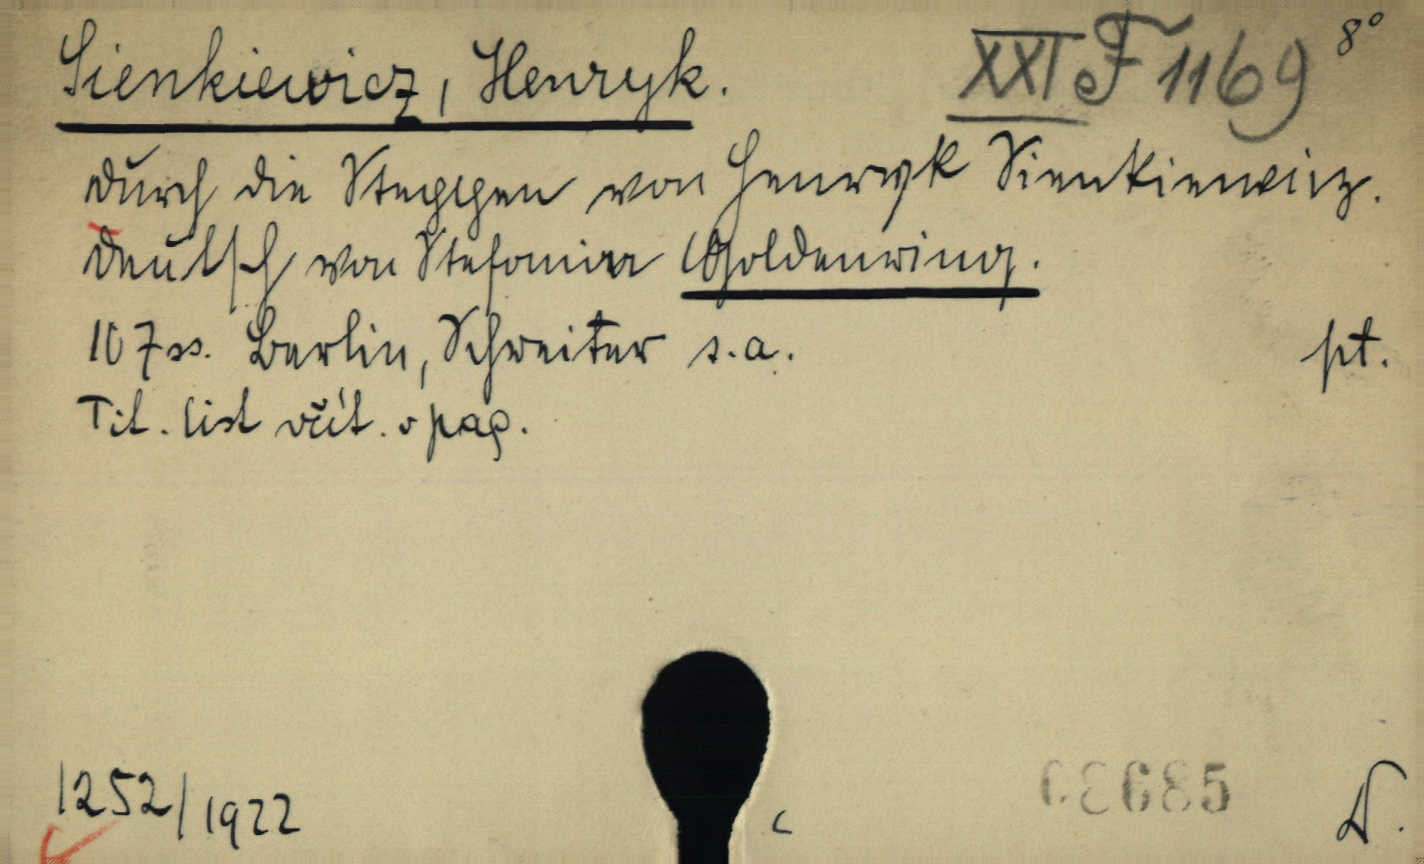 Sienkiewicz, Henryk.
XXI F 1169 8°
Durch die Steppen von Henryk Sienkiewicz.
Deutsch von Stefania Goldenring.
107 ss. Berlin, Schreiter s.a.
pt.
Tit. list včít. v pag.
1252/1922
c